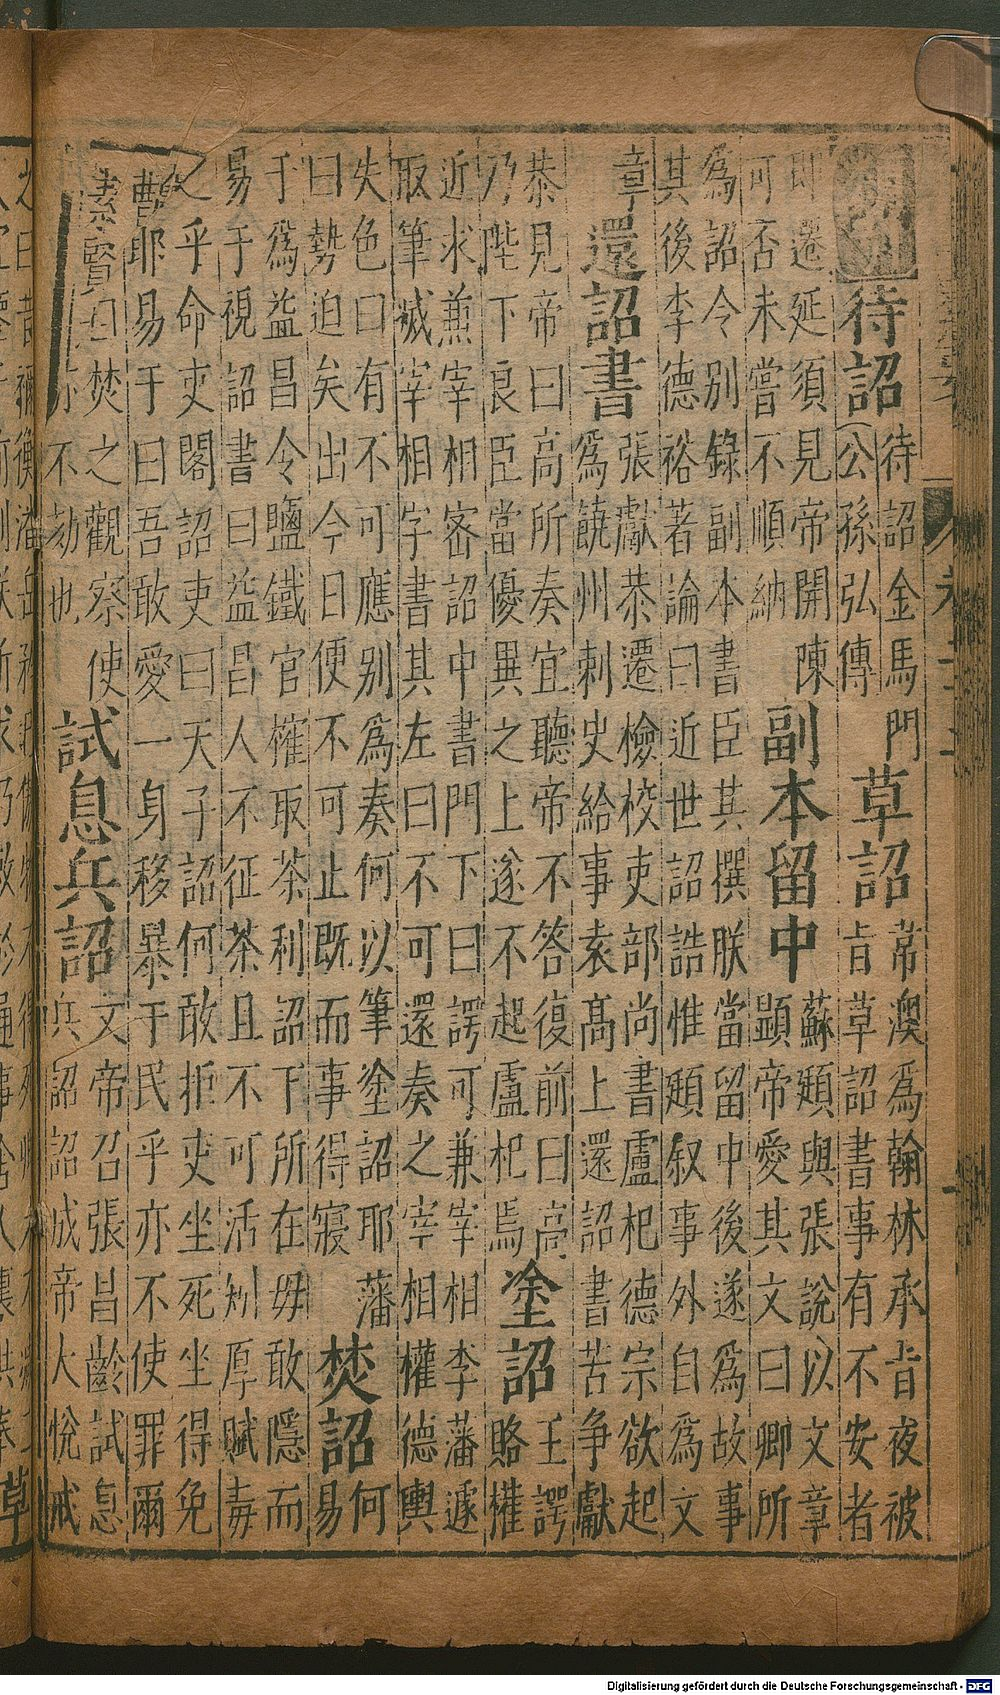 待詔
待詔金馬門
公孫弘傳
草詔
韋澳爲翰林承旨夜被
旨草詔書事有不安者
即遷延須見帝開陳
可否未嘗不順納
副本留中
蘇頲與張說以文章
顯帝愛其文曰卿所
爲詔令别錄副本書臣其撰朕當留中後遂爲故事
其後李德裕著論曰近世詔誥惟頲叙事外自爲文
章
還詔書
張獻恭遷檢校吏部尚書盧杞德宗欲起
爲饒州刺史給事袁高上還詔書苦争獻
恭見帝曰高所奏宜聽帝不答復前曰高
乃陛下良臣當優異之上遂不起盧杞焉
塗詔
王諤
賂權
近求兼宰相密詔中書門下曰諤可兼宰相李藩遽
取筆滅宰相字書其左曰不可還奏之宰相權德輿
失色曰有不可應别爲奏何以筆塗詔耶藩
曰勢迫矣出今日便不可止既而事得寢
焚詔
何
易
于爲益昌令鹽鐵官榷取茶利詔下所在毋敢隱而
易于視詔書曰益昌人不征茶且不可活矧厚賦毒
之乎命吏閣詔吏曰天子詔何敢拒吏坐死坐得免
耶易于曰吾敢愛一身移暴于民乎亦不使罪爾
素賢焚之觀察使
亦不劾也
試息兵詔
文帝召張昌齡試息
兵詔詔成帝大悅戒
Digitalisierung gefördert durch die Deutsche Forschungsgemeinschaft - DFG